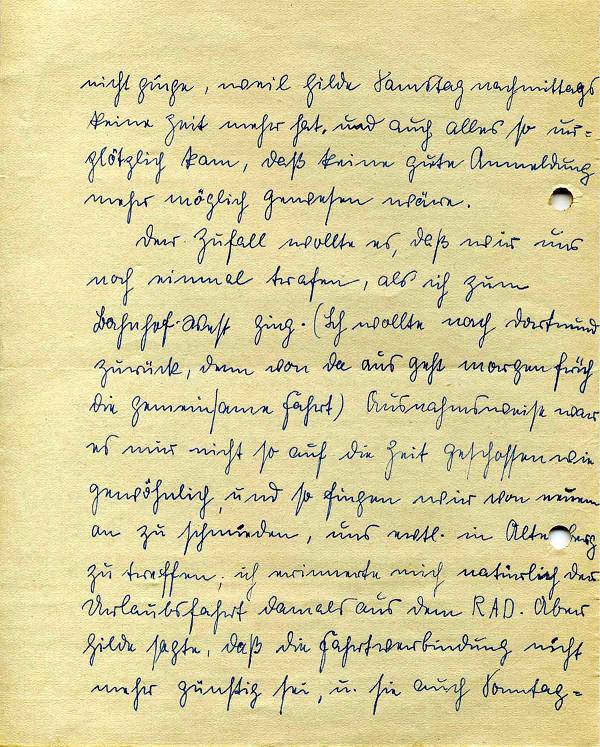 nicht ginge, weil Hilde Samstag nachmittags
keine Zeit mehr hat. und auch alles so ur=
plötzlich kam, daß keine gute Anmeldung
mehr möglich gewesen wäre.
Der Zufall wollte es, daß wir uns
noch einmal trafen, als ich zum
Bahnhof-West ging. (Ich wollte nach Dortmund
zurück, denn von da aus geht morgen früh
die gemeinsame Fahrt) Ausnahmsweise war
es mir nicht so auf die Zeit geschossen wie
gewöhnlich, und so fingen wir von neuem
an zu schmieden, uns evtl. in Altenberg
zu treffen; ich erinnerte mich natürlich der
Urlaubsfahrt damals aus dem RAD. Aber
Hilde sagte, daß die Fahrtverbindung nicht
mehr günstig sei, u. sie auch Sonntag=